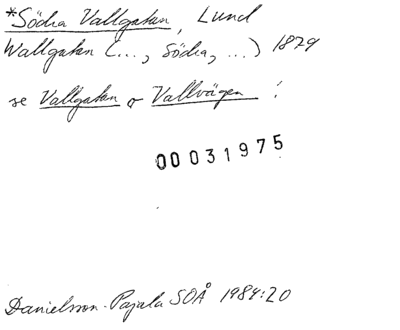 *Södra Vallgatan, Lund
Wallgatan (..., Södra, ...) 1829
se Vallgatan o Vallvägen !
00031975
Danielsson-Pajala SOÅ 1984:20